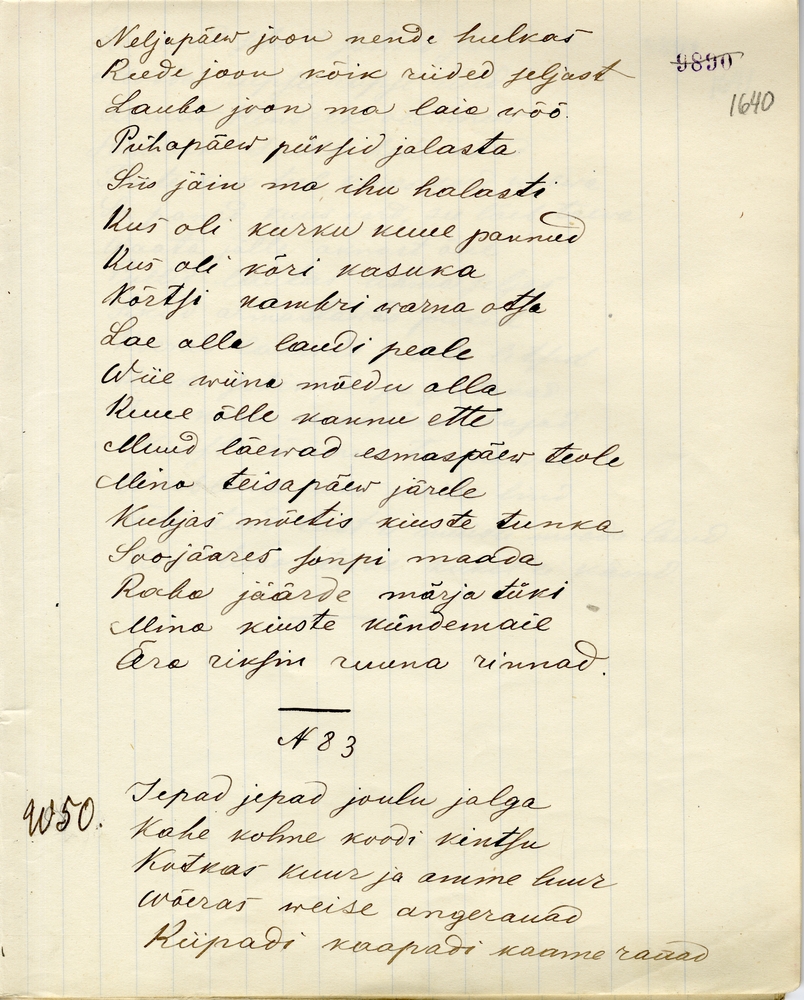 Neljapäew joon nende hulkas
9890
Reede joon kõik riided seljast
1640
Lauba joon ma laia wöö.
Pühapäew püksid jalasta
Siis jäin ma ihu halasti
Kus oli kurku kuue pannud
Kus oli kõri kasuka
Kõrtsi kambri warna otsa
Lae alla laudi peale
Wiie wiina mõedu alla
Kuue õlle kannu ette
Muud läewad esmaspäew teole
Mina teisapäew järele
Kubjas mõetis kiuste tunka
Soojääres sonpi maada
Raba jäärde märja tüki
Mina kiuste kündemaie
Ära riksin ruuna rinnad.
N 83
W50.
Jepad jepad joulu jalga
Kahe kolme koodi kintsu
Kotkas kuur ja amme luur
Wõeras weise angerauad
Kiipadi kaapadi kaame rauad